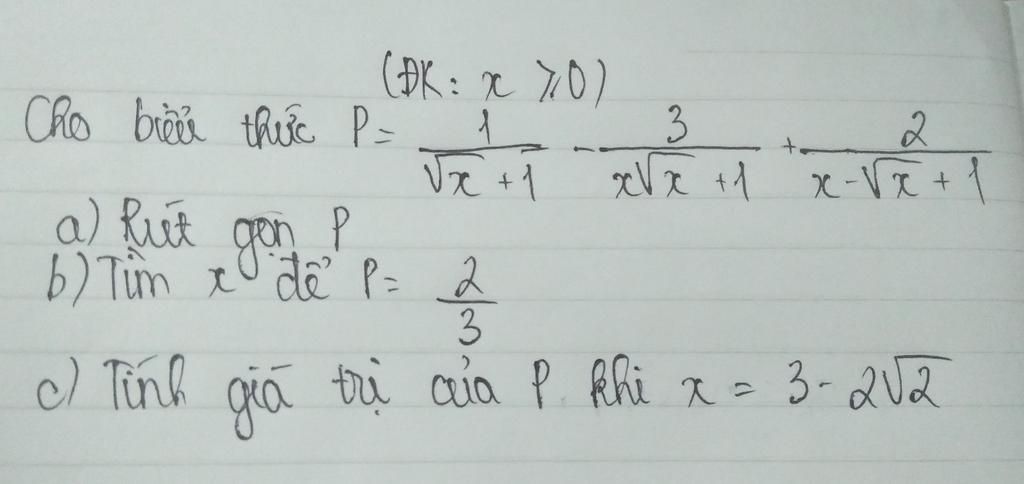 (ĐK: x ⩾ 0)
Cho biểu thức P = 1/(√x + 1) - 3/(x√x + 1) + 2/(x - √x + 1)
a) Rút gọn P
b) Tìm x để P = 2/3
c) Tính giá trị của P khi x = 3 - 2√2